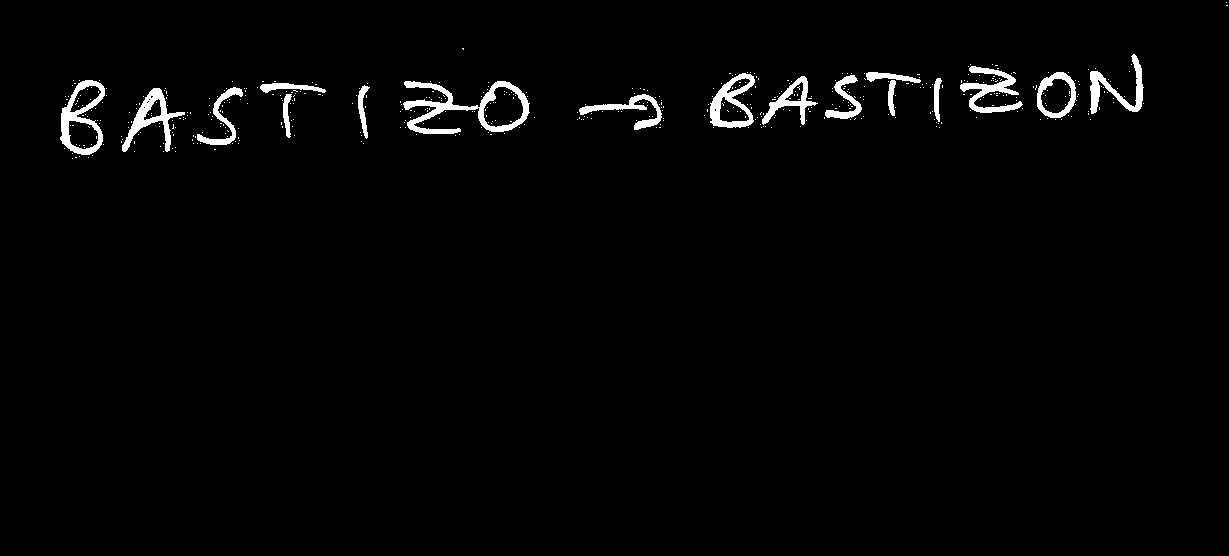 BASTIZO → BASTIZON